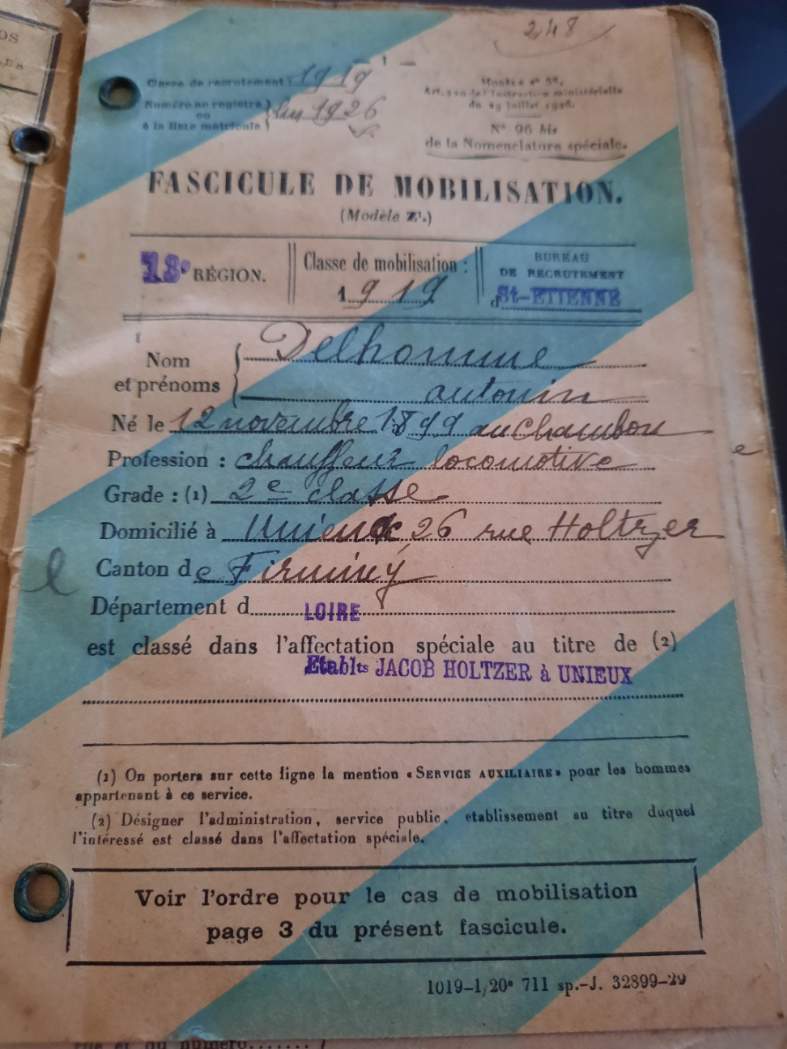 248
— 1 —
Classe de recrutement : 1919
Numéro au registre
ou
à la liste matricule
1926
Modèle n° 52,
ministérielle
du 29 juillet 1926.
N° 96 bis
de la Nomenclature spéciale.
FASCICULE DE MOBILISATION.
(Modèle Z¹.)
13e RÉGION.
Classe de mobilisation :
1919
BUREAU
DE RECRUTEMENT
d St-ETIENNE
Nom
et prénoms
Delhomme
antonin
Né le 12 novembre 1899 au Chambon
Profession : chauffeur locomotive
Grade : (1) 2e classe
Domicilié à Unieux 26 rue Holtzer
Canton de Firminy
Département d LOIRE
est classé dans l'affectation spéciale au titre de (2)
Etablts JACOB HOLTZER à UNIEUX
(1) On portera sur cette ligne la mention « SERVICE AUXILIAIRE » pour les hommes
appartenant à ce service.
(2) Désigner l'administration, service public, établissement au titre duquel
l'intéressé est classé dans l'affectation spéciale.
Voir l'ordre pour le cas de mobilisation
page 3 du présent fascicule.
1019-1/20e 711 sp.-J. 32899-29